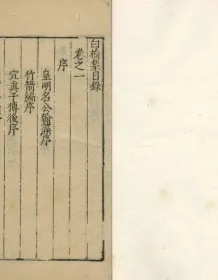 白榆集目錄
卷之一
序
皇明名公翰藻序
竹箭編序
宜真子傳後序